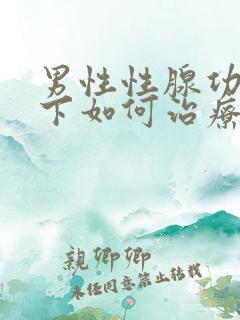 男性性腺功
下如何治疗
親卿卿
未经同意禁止转载